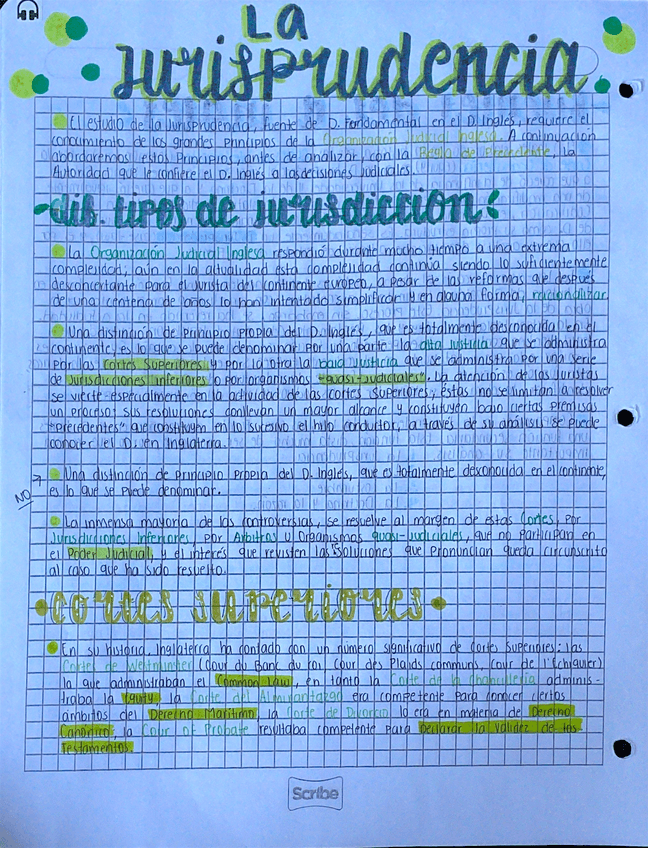 La
Jurisprudencia
El estudio de la Jurisprudencia, fuente de D. Fundamental en el D. Inglés, requiere el
conocimiento de los grandes Principios de la Organización Judicial Inglesa. A continuación
abordaremos estos Principios, antes de analizar, con la Regla de Precedente, la
Autoridad que le confiere el D. Inglés a las decisiones Judiciales.
dis. tipos de jurisdicción:
La Organización Judicial Inglesa respondió durante mucho tiempo a una extrema
complejidad, aún en la actualidad esta complejidad continúa siendo lo suficientemente
desconcertante para el Jurista del continente europeo, a pesar de las reformas que después
de una centena de años lo han intentado simplificar y en alguna forma, racionalizar.
Una distinción de principio propia del D. Inglés, que es totalmente desconocida en el
continente, es lo que se puede denominar por una parte la alta Justicia que se administra
por las Cortes Superiores y por la otra la baja Justicia que se administra por una serie
de Jurisdicciones inferiores o por organismos "quasi-Judiciales". La atención de los Juristas
se vierte especialmente en la actividad de las cortes superiores; éstas no se limitan a resolver
un proceso; sus resoluciones conllevan un mayor alcance y constituyen bajo ciertas premisas
"precedentes" que constituyen en lo sucesivo el hilo conductor, a través de su análisis se puede
conocer el D. en Inglaterra.
NO →
Una distinción de Principio Propia del D. Inglés, que es totalmente desconocida en el continente,
es lo que se Puede denominar.
La inmensa mayoría de las controversias, se resuelve al margen de estas Cortes, por
Jurisdicciones Inferiores, por Arbitros u Organismos quasi-Judiciales, que no participan en
el Poder Judicial, y el interés que revisten las soluciones que pronuncian queda circunscrito
al caso que ha sido resuelto.
Cortes superiores
En su historia, Inglaterra ha contado con un número significativo de Cortes Superiores: las
Cortes de Westminster (Cour du Banc du roi, Cour des Plaids communs, Cour de l'Echiquier)
la que administraban el Common Law, en tanto la Corte de la Chancillería adminis-
traba la Equity, la Corte del Almirantazgo era competente para conocer ciertos
ámbitos del Derecho Marítimo, la Corte de Divorcio lo era en materia de Derecho
Canónico, la Cour of Probate resultaba competente para Declarar la validez de los
Testamentos.
Scribe